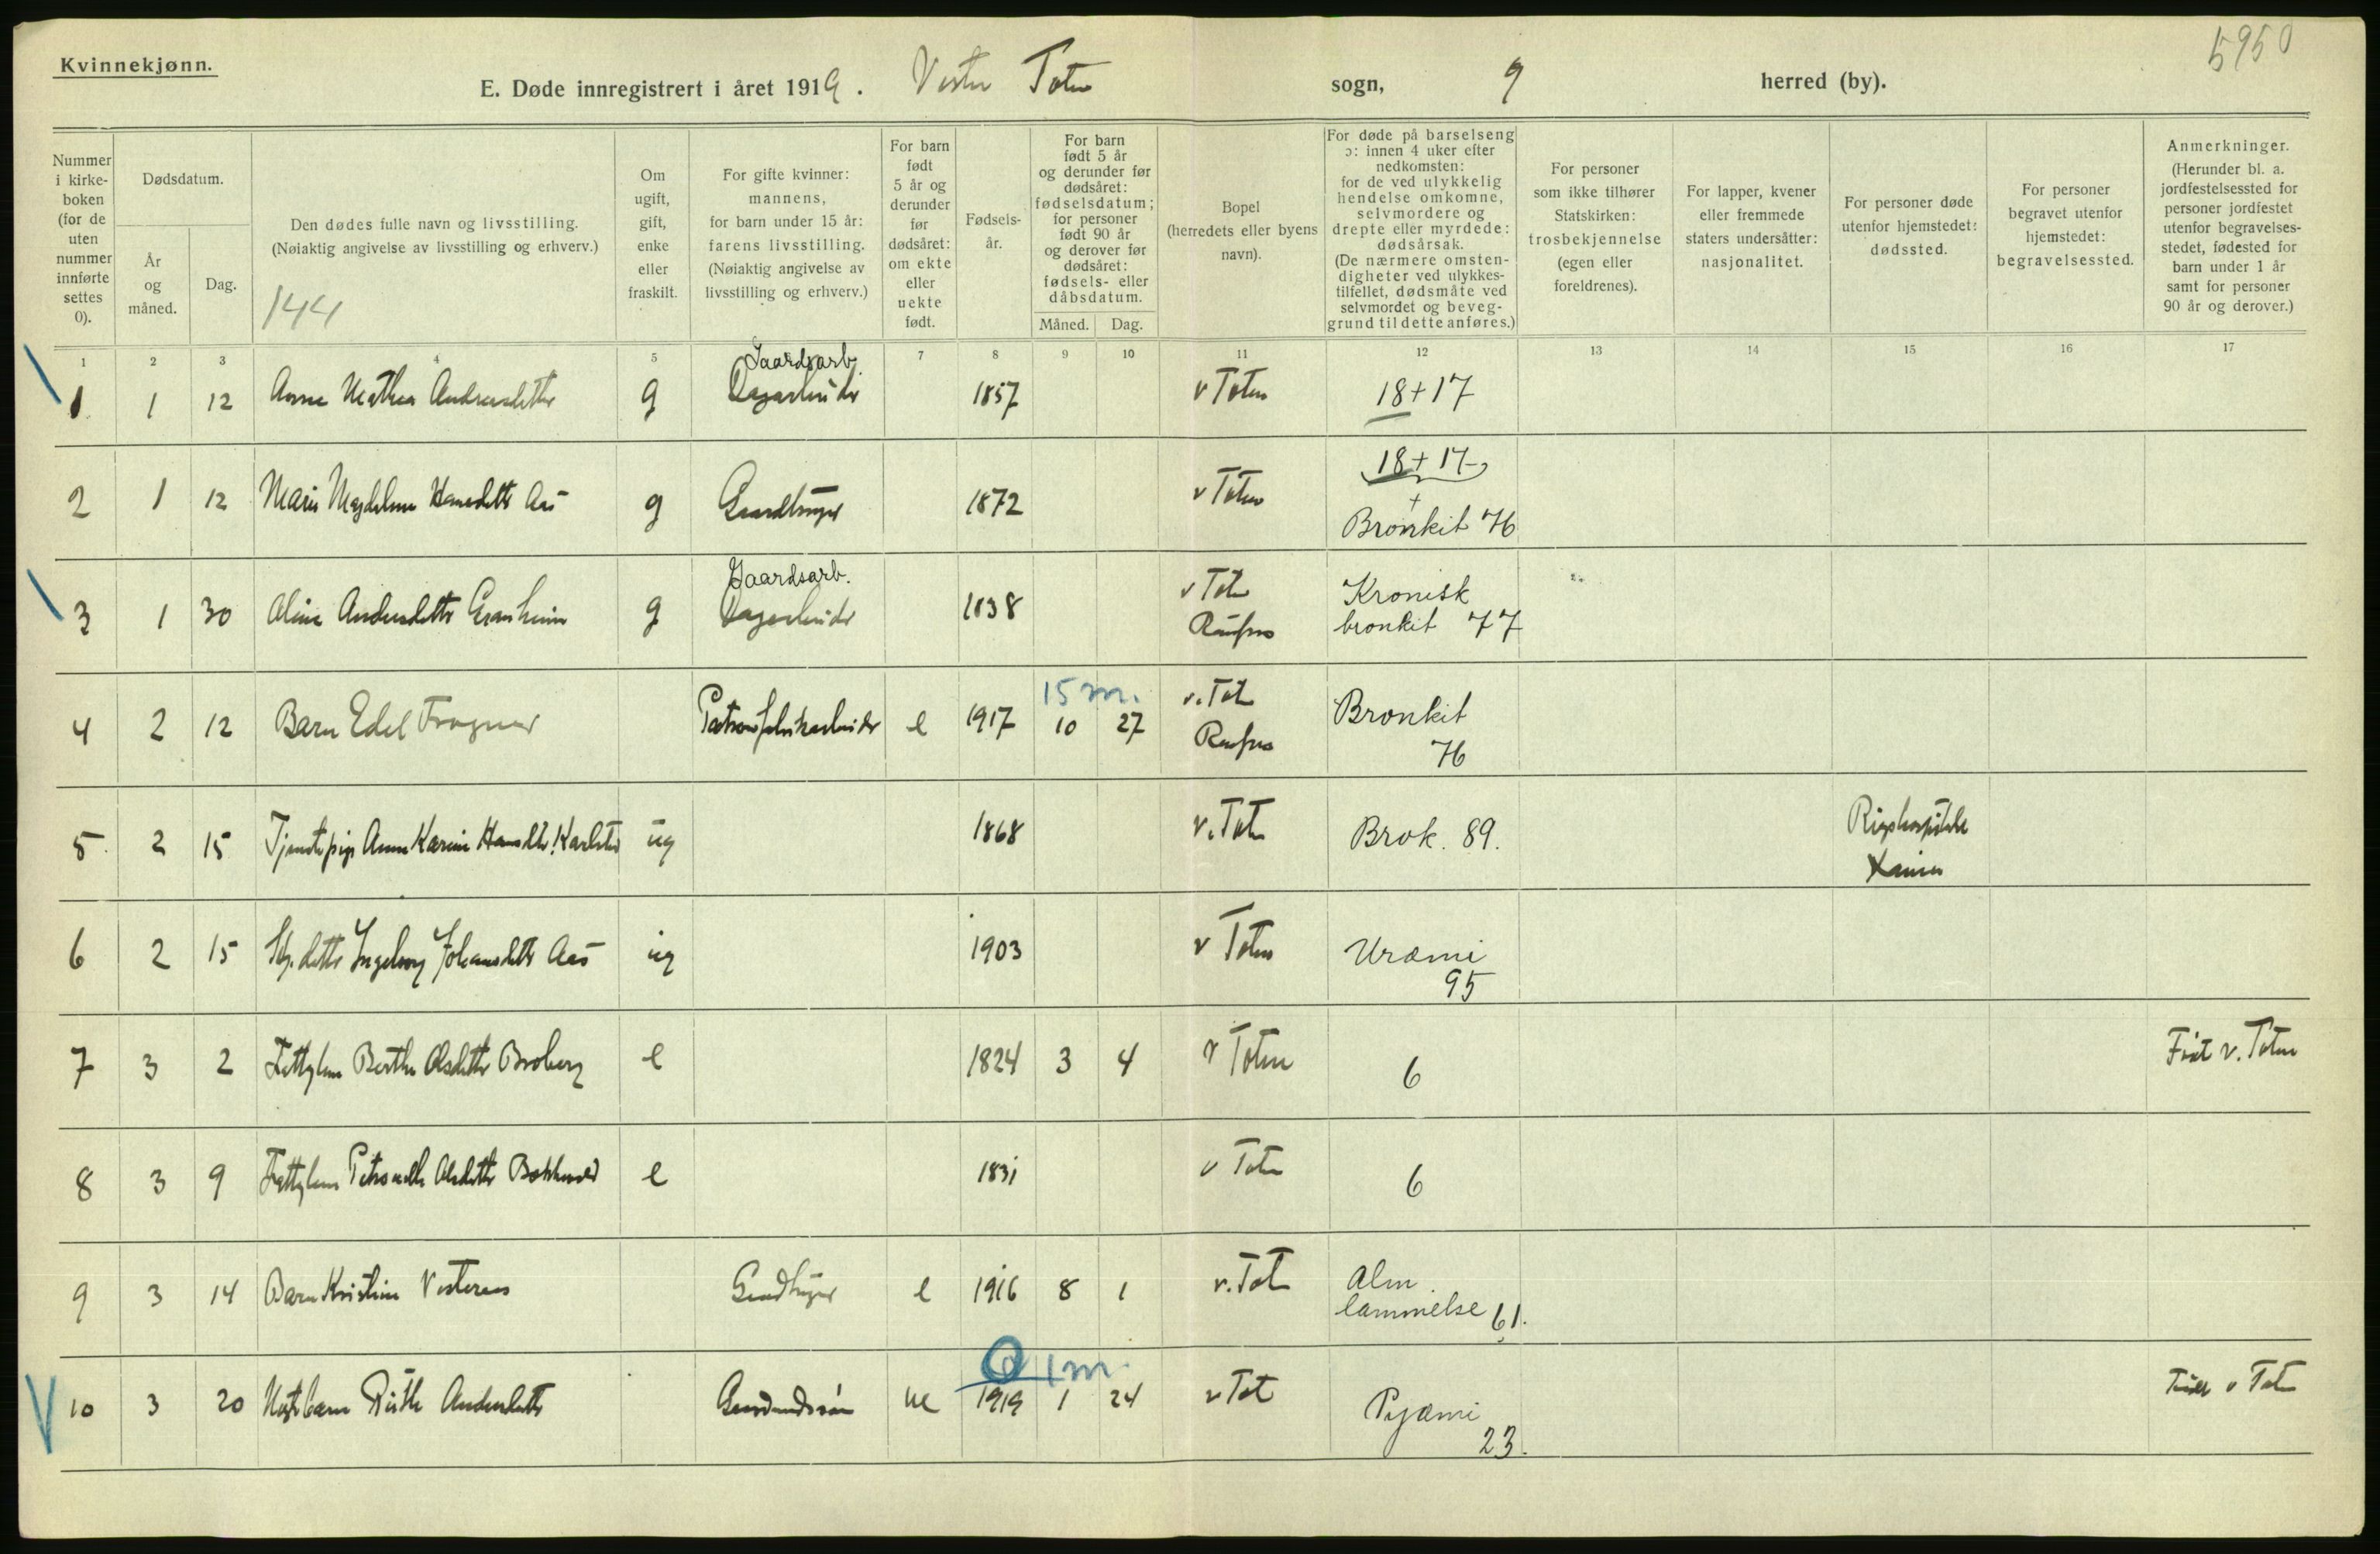 5950
Kvinnekjønn.
E. Døde innregistrert i året 1919. Vester Toten sogn, 9 herred (by).
Nummer i kirke- boken (for de uten nummer innførte settes 0).
Dødsdatum.
År og måned.
Dag.
Den dødes fulle navn og livsstilling.
(Nøiaktig angivelse av livsstilling og erhverv.)
144
Om ugift, gift, enke eller fraskilt.
For gifte kvinner: mannens, for barn under 15 år: farens livsstilling. (Nøiaktig angivelse av livsstilling og erhverv.)
For barn født 5 år og derunder før dødsåret: om ekte eller uekte født.
Fødsels- år.
For barn født 5 år og derunder før dødsåret: fødselsdatum; for personer født 90 år og derover før dødsåret: fødsels- eller dåbsdatum.
Måned. Dag.
Bopel (herredets eller byens navn).
For døde på barselseng ɔ: innen 4 uker efter nedkomsten: for de ved ulykkelig hendelse omkomne, selvmordere og drepte eller myrdede: dødsårsak. (De nærmere omsten- digheter ved ulykkes- tilfellet, dødsmåte ved selvmordet og beveg- grund til dette anføres.)
For personer som ikke tilhører Statskirken: trosbekjennelse (egen eller foreldrenes).
For lapper, kvener eller fremmede staters undersåtter: nasjonalitet.
For personer døde utenfor hjemstedet: dødssted.
For personer begravet utenfor hjemstedet: begravelsessted.
Anmerkninger. (Herunder bl. a. jordfestelsessted for personer jordfestet utenfor begravelses- stedet, fødested for barn under 1 år samt for personer 90 år og derover.)
1 2 3 4 5 7 8 9 10 11 12 13 14 15 16 17
Gaardsarb.
1 1 12 Anne Mathea Andreasdatter g Dagarbeider 1857 v Toten 18+17
2 1 12 Marie Magdelene Hansdatter Aas g Gaardbruger 1872 v Toten 18+17
+
Bronkit 76
Gaardsarb.
3 1 30 Oline Andersdatter Granheim g Dagarbeider 1838 v Toten Raufoss Kronisk
bronkit 77
15 m.
4 2 12 Barn Edel Frogner Patronfabrikarbeider e 1917 10 27 v. Tot Raufoss Bronkit
76
5 2 15 Tjenestepige Anne Karine Hansdtr. ug 1868 v. Toten Brok. 89. Rigshospitalet
6 2 15 datter Ingeborg Johansdatter Aas ug 1903 v Toten Uræmi
95
7 3 2 Berthe Olsdatter Broberg e 1824 3 4 v Toten 6 Født v. Toten
8 3 9 Petronelle Olsdatter e 1831 v Toten 6
9 3 14 Barn Kristine Vesteraas Gaardbruger e 1916 8 1 v. Tot Alm.
lammelse 61.
0 1 m.
10 3 20 Ruth Andersdatter ue 1919 1 24 v Tot Pyæmi
23. v Toten